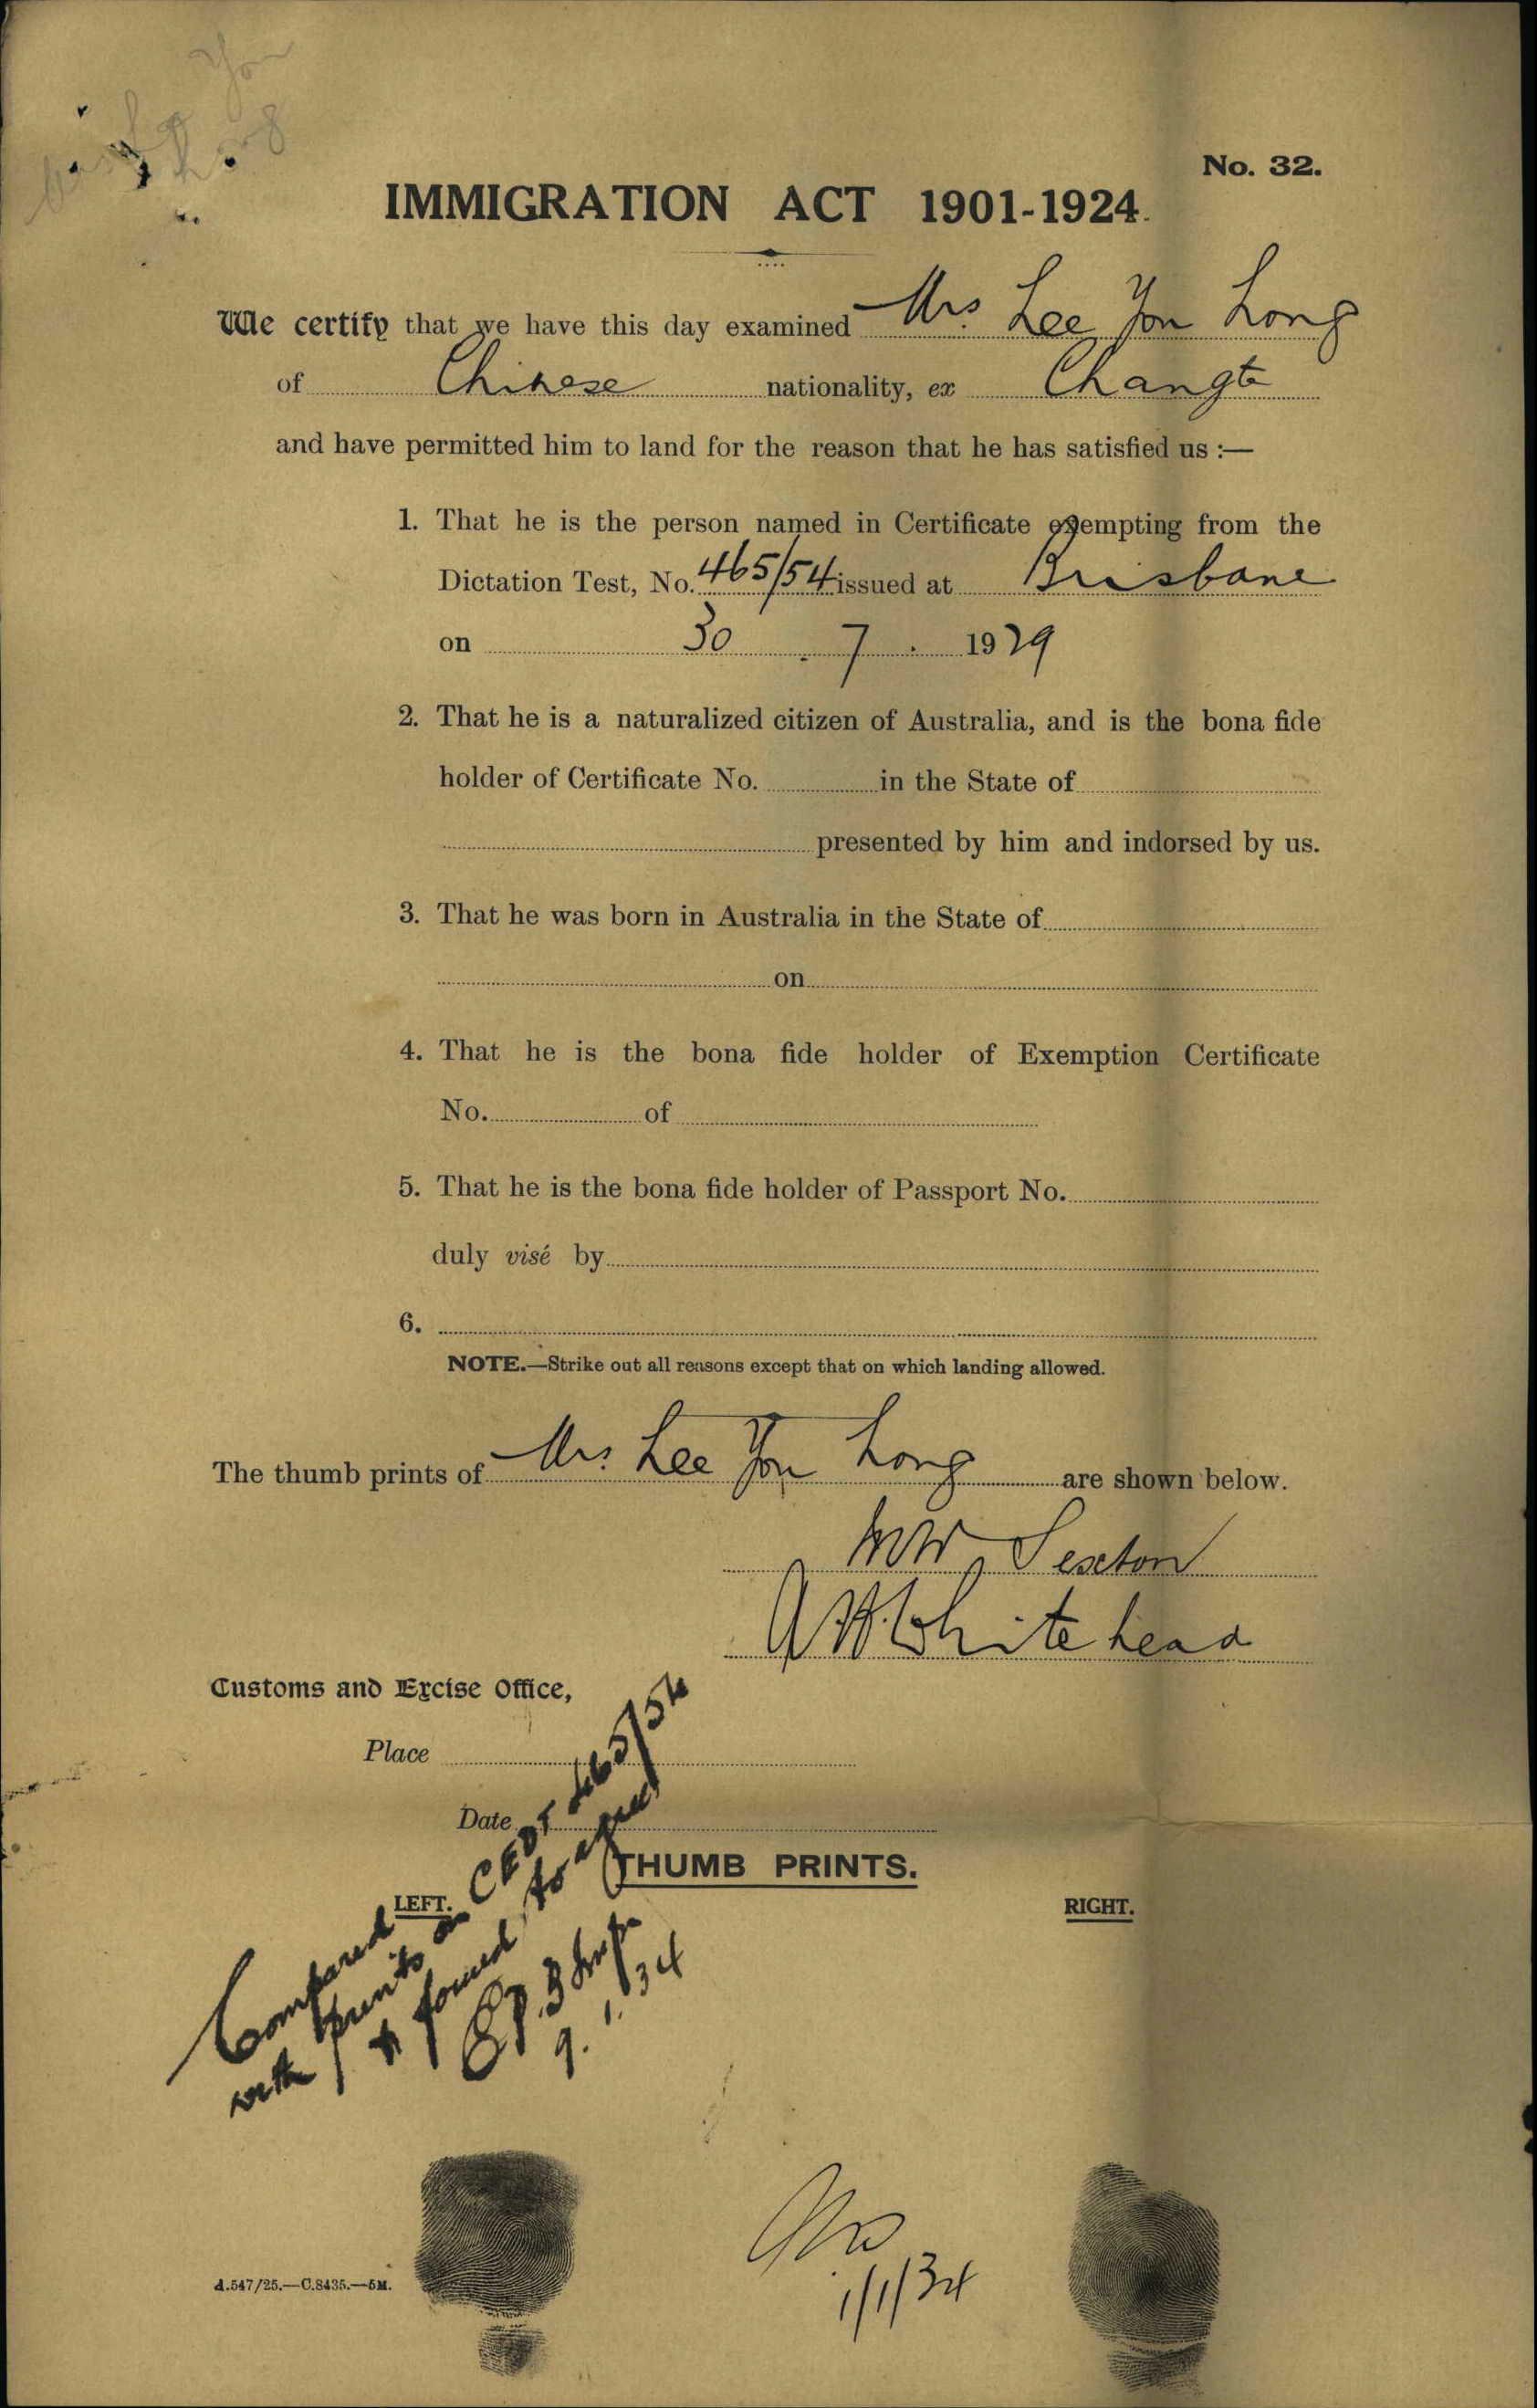 You
No. 32.
IMMIGRATION ACT 1901-1924.
We certify that we have this day examined Mrs. Lee You Long
of Chinese nationality, ex Changte
and have permitted him to land for the reason that he has satisfied us :—
1. That he is the person named in Certificate exempting from the
Dictation Test, No. 465/54 issued at Brisbane
on 30 . 7 . 1929
2. That he is a naturalized citizen of Australia, and is the bona fide
holder of Certificate No. in the State of
presented by him and indorsed by us.
3. That he was born in Australia in the State of
on
4. That he is the bona fide holder of Exemption Certificate
No. of
5. That he is the bona fide holder of Passport No.
duly visé by
6.
NOTE.—Strike out all reasons except that on which landing allowed.
The thumb prints of Mrs. Lee You Long are shown below.
Sexton
Whitehead
Customs and Excise Office,
Place
Date
THUMB PRINTS.
LEFT.
RIGHT.
Compared
with prints on CEDT 465/54
& found to agree
9.1.34
1/1/34
A.547/25.—C.8435.—5M.